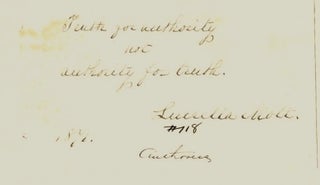 Truth for authority
not
authority for truth.
Lucretia Mott.
#718
187